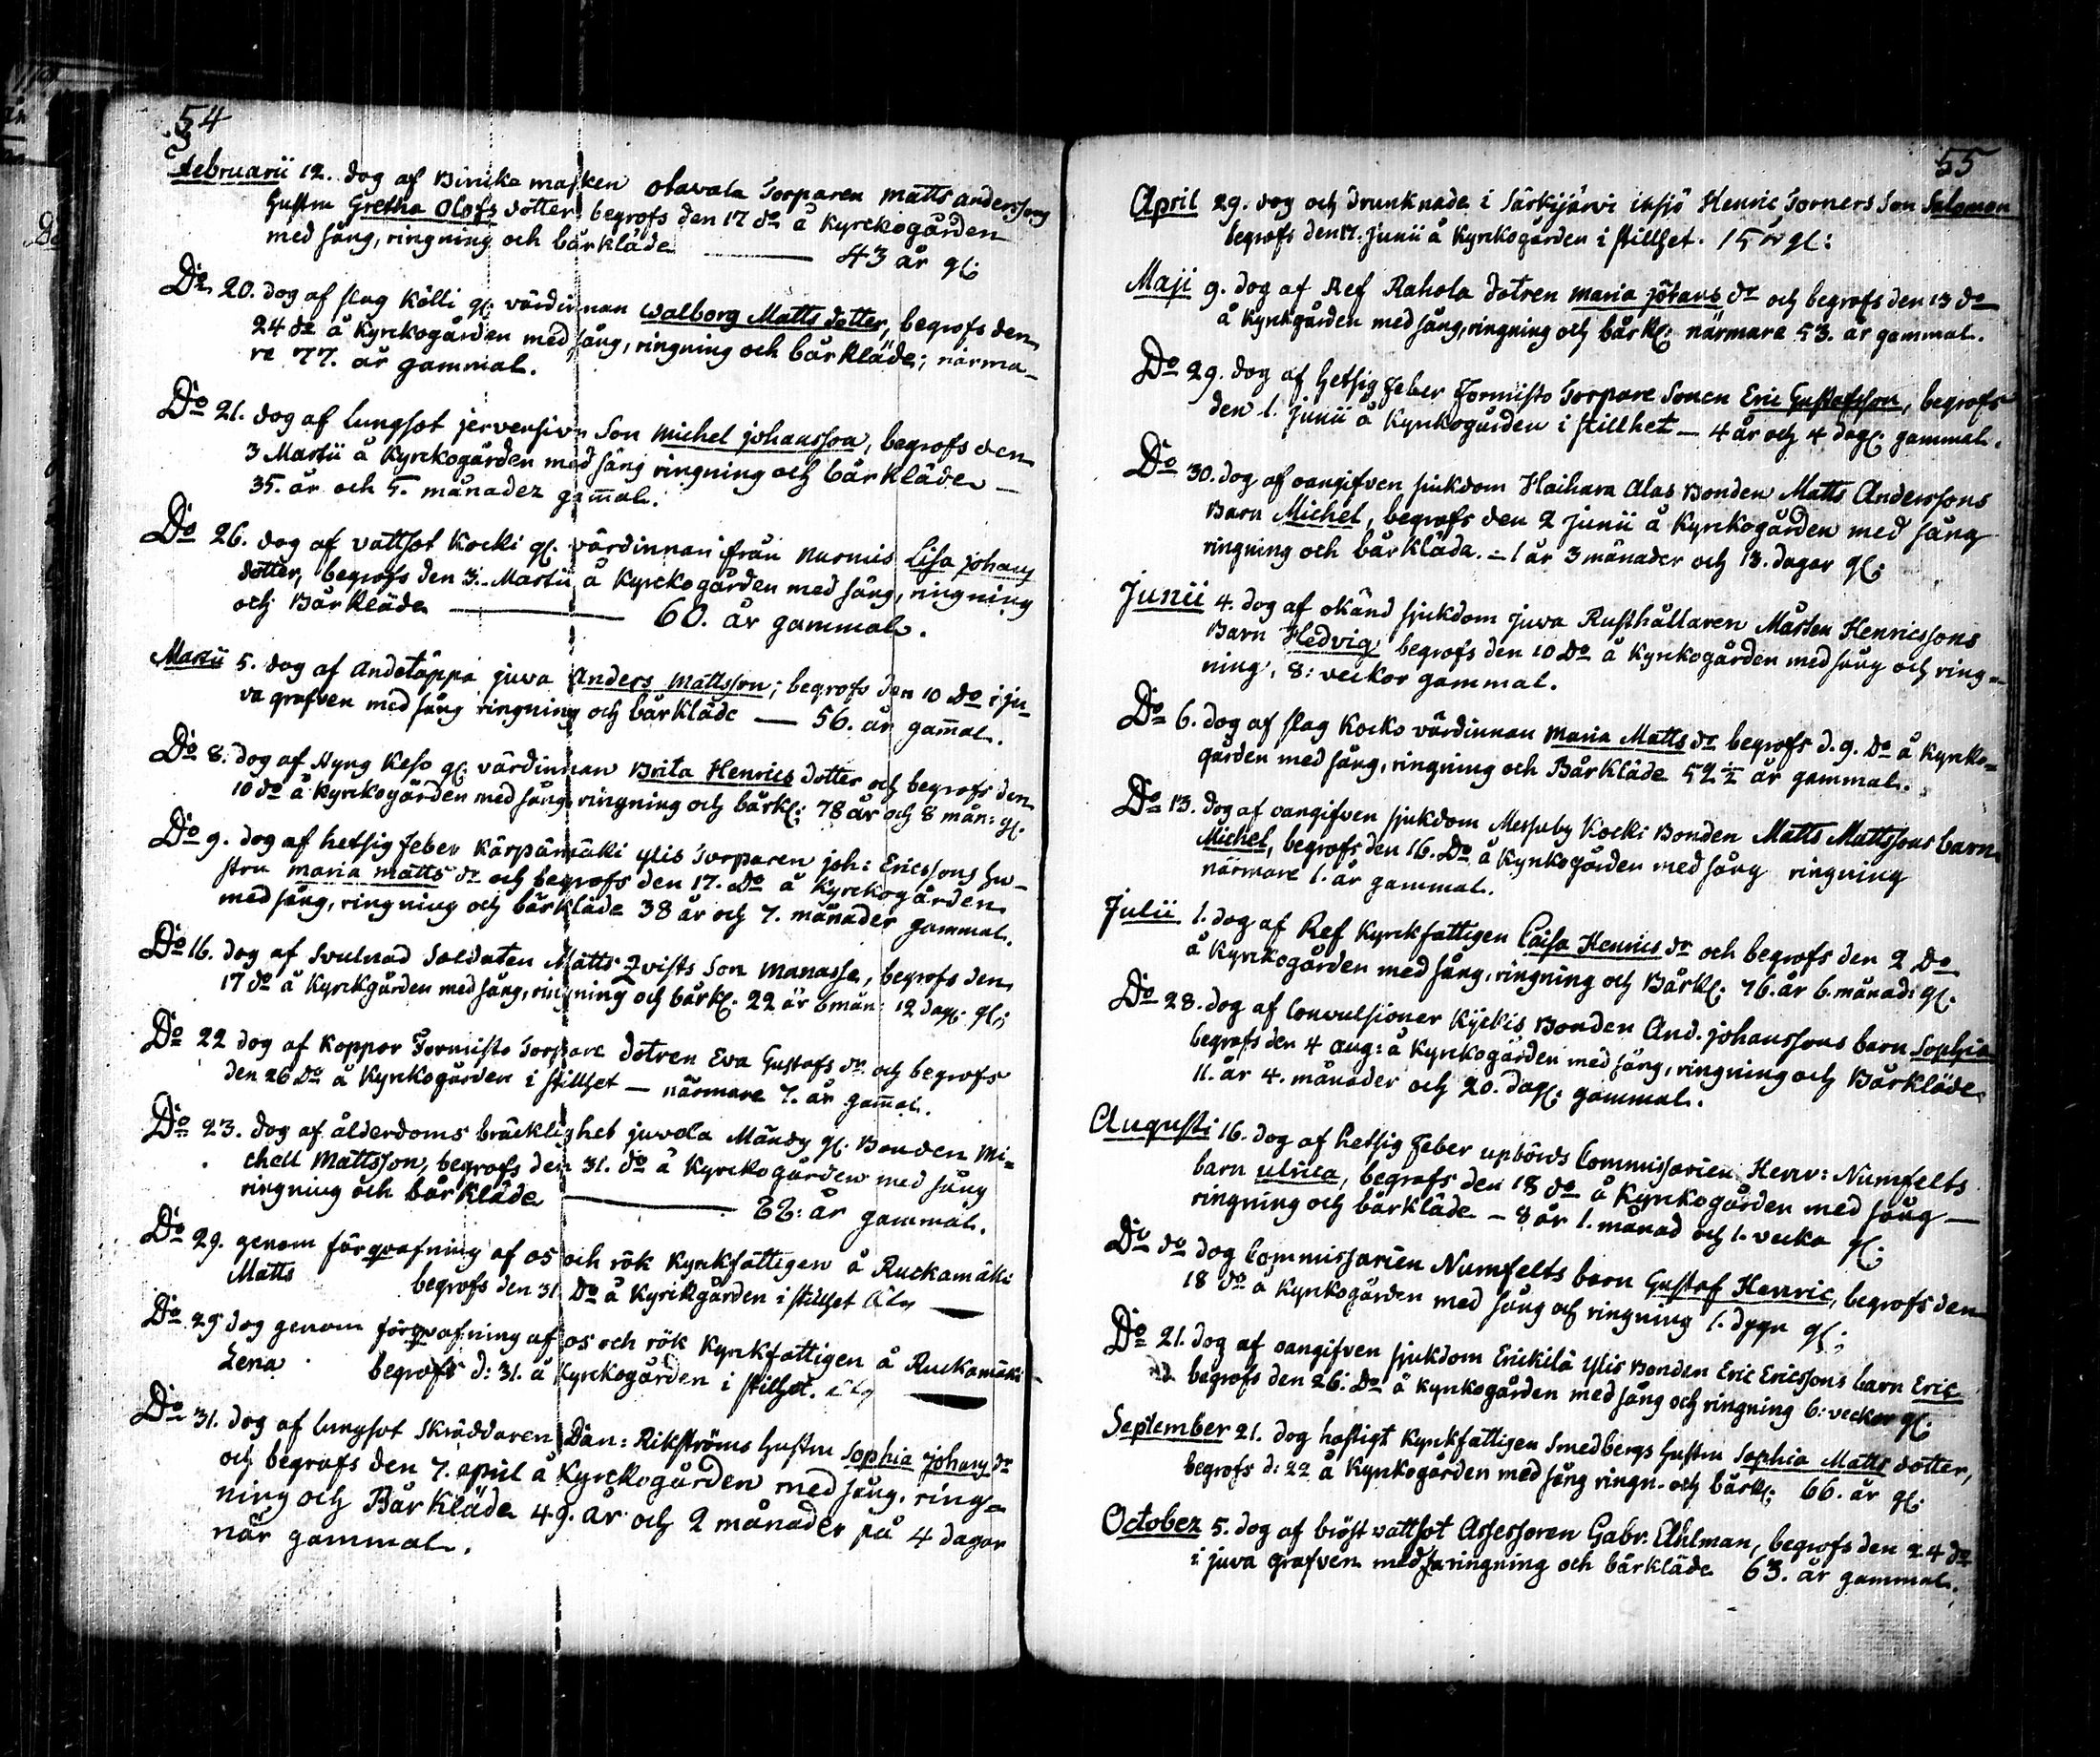 54
Februarii 12. dog af Binike masken Otavala Torparen Matts Anderssons
Hustru Gretha Olofs dotter, begrofs den 17 do å Kyrckogården
med sång, ringning och bårkläde — 43 år gl:
Do 20. dog af slag Kölli gl. värdinnan Walborg Matts dotter, begrofs den
24 do å Kyrckogården med sång, ringning och bårkläde; närma-
re 77. år gammal.
Do 21. dog af lungsot Son Michel Johansson, begrofs den
3 Martii å Kyrckogården med sång ringning och bårkläde —
35. år och 5. månader gammal.
Do 26. dog af vattsot Kocki gl. värdinnan ifrån Nurmis Lisa Johans
dotter, begrofs den 3. Martii å Kyrckogården med sång, ringning
och Bårkläde — 60. år gammal.
Martii 5. dog af andetäppa Juva Anders Mattsson; begrofs den 10 do i Ju-
va grafven med sång ringning och bårkläde — 56. år gam̄al.
Do 8. dog af Hyng Keso gl. värdinnan Brita Henrics dotter och begrofs den
10 do å Kyrckogården med sång ringning och bårkl: 78 år och 8 mån: gl.
Do 9. dog af hetsig feber Kärpämäki ylis Torparen Joh: Ericssons Hu-
stru Maria Matts dr och begrofs den 17. Do å Kyrckogården
med sång, ringning och bårkläde 38 år och 7. månader gammal.
Do 16. dog af Svulnad Soldaten Matts Qvists Son Manasse, begrofs den
17 do å Kyrckgården med sång, ringning och bårkl. 22 år 6 mån: 12 dag. gl:
Do 22 dog af Koppor Formisto Torpare dotren Eva Gustafs dr. och begrofs
den 26 Do å Kyrckogården i stillhet — närmare 7. år gam̄al.
Do 23. dog af ålderdoms bräcklighet Juvela Mändy gl. Bonden Mi-
chell Mattsson, begrofs den 31. do å Kyrckogården med sång
ringning och bårkläde — år gammal.
Do 29. genom förqvafning af os och rök Kyrckfattigen å Ruckamäki
Matts begrofs den 31 Do å Kyrckgården i stillhet —
Do 29 dog genom förqvafning af os och rök Kyrckfattigen å Ruckamäki
Lena begrofs d: 31. å Kyrckogården i stillhet. —
Do 31. dog af lungsot Skräddaren Dan: Rikströms Hustru Sophia Johans dr
och begrofs den 7. april å Kyrckogården med sång, ring-
ning och Bårkläde 49. år och 2 månader på 4 dagar
när gammal.
55
April 29. dog och drunknade i Särkijärvi insjö Henric Torners Son Salomon
begrofs den 17. Junii å Kyrckogården i stillhet. 15 år gl:
Maji 9. dog af Ref Rahola dotren Maria Johans dr och begrofs den 13 do
å Kyrckgården med sång, ringning och bårkl: närmare 53. år gammal.
Do 29. dog af hetsig feber Formisto Torpare Sonen Eric Gustafsson, begrofs
den 1. Junii å Kyrckogården i stillhet — 4 år och 4 dag: gammal.
Do 30. dog af oangifven sjukdom Haihara Alas Bonden Matts Anderssons
Barn Michel, begrofs den 2 Junii å Kyrckogården med sång
ringning och bårkläde. — 1 år 3 månader och 13. dagar gl:
Junii 4. dog af okänd sjukdom Juva Rusthållaren Mårten Henricssons
Barn Hedvig begrofs den 10 Do å Kyrckogården med sång och ring-
ning, 8: veckor gammal.
Do 6. dog af slag Kocko värdinnan Maria Matts dr begrofs d. 9. Do å Kyrcko-
gården med sång, ringning och Bårkläde 52 1/2 år gammal.
Do 13. dog af oangifven sjukdom Messuby Kocki Bonden Matts Mattssons barn
Michel, begrofs den 16. Do å Kyrckogården med sång ringning
närmare 1. år gammal.
Julii 1. dog af Ref Kyrckfattigen Caisa Henrics dr och begrofs den 2 Do
å Kyrckogården med sång, ringning och Bårkl: 76. år 6. månad: gl.
Do 28. dog af Convulsioner Kyckis Bonden And. Johanssons barn Sophia
begrofs den 4 Aug: å Kyrckogården med sång, ringning och Bårkläde
11. år 4. månader och 20. dag: gammal.
Augusti 16. dog af hetsig feber upbörds Commissarien Henr: Numfelts
barn Ulrica, begrofs den 18 do å Kyrckogården med sång —
ringning och bårkläde — 8 år 1. månad och 1. vecka gl:
Do do dog Commissarien Numfelts barn Gustaf Henric, begrofs den
18 do å Kyrckogården med sång och ringning 1. dygn gl:
Do 21. dog af oangifven sjukdom Erickilä ylis Bonden Eric Ericssons barn Eric
begrofs den 26: Do å Kyrckogården med sång och ringning 6: veckor gl:
September 21. dog hastigt Kyrckfattigen Smedbergs Hustru Sophia Matts dotter,
begrofs d: 22 å Kyrckogården med sång ringn. och bårkl: 66. år gl:
October 5. dog af bröst vattsot Assessoren Gabr: Ahlman, begrofs den 24 do
i Juva grafven med ringning och bårkläde 63. år gammal.